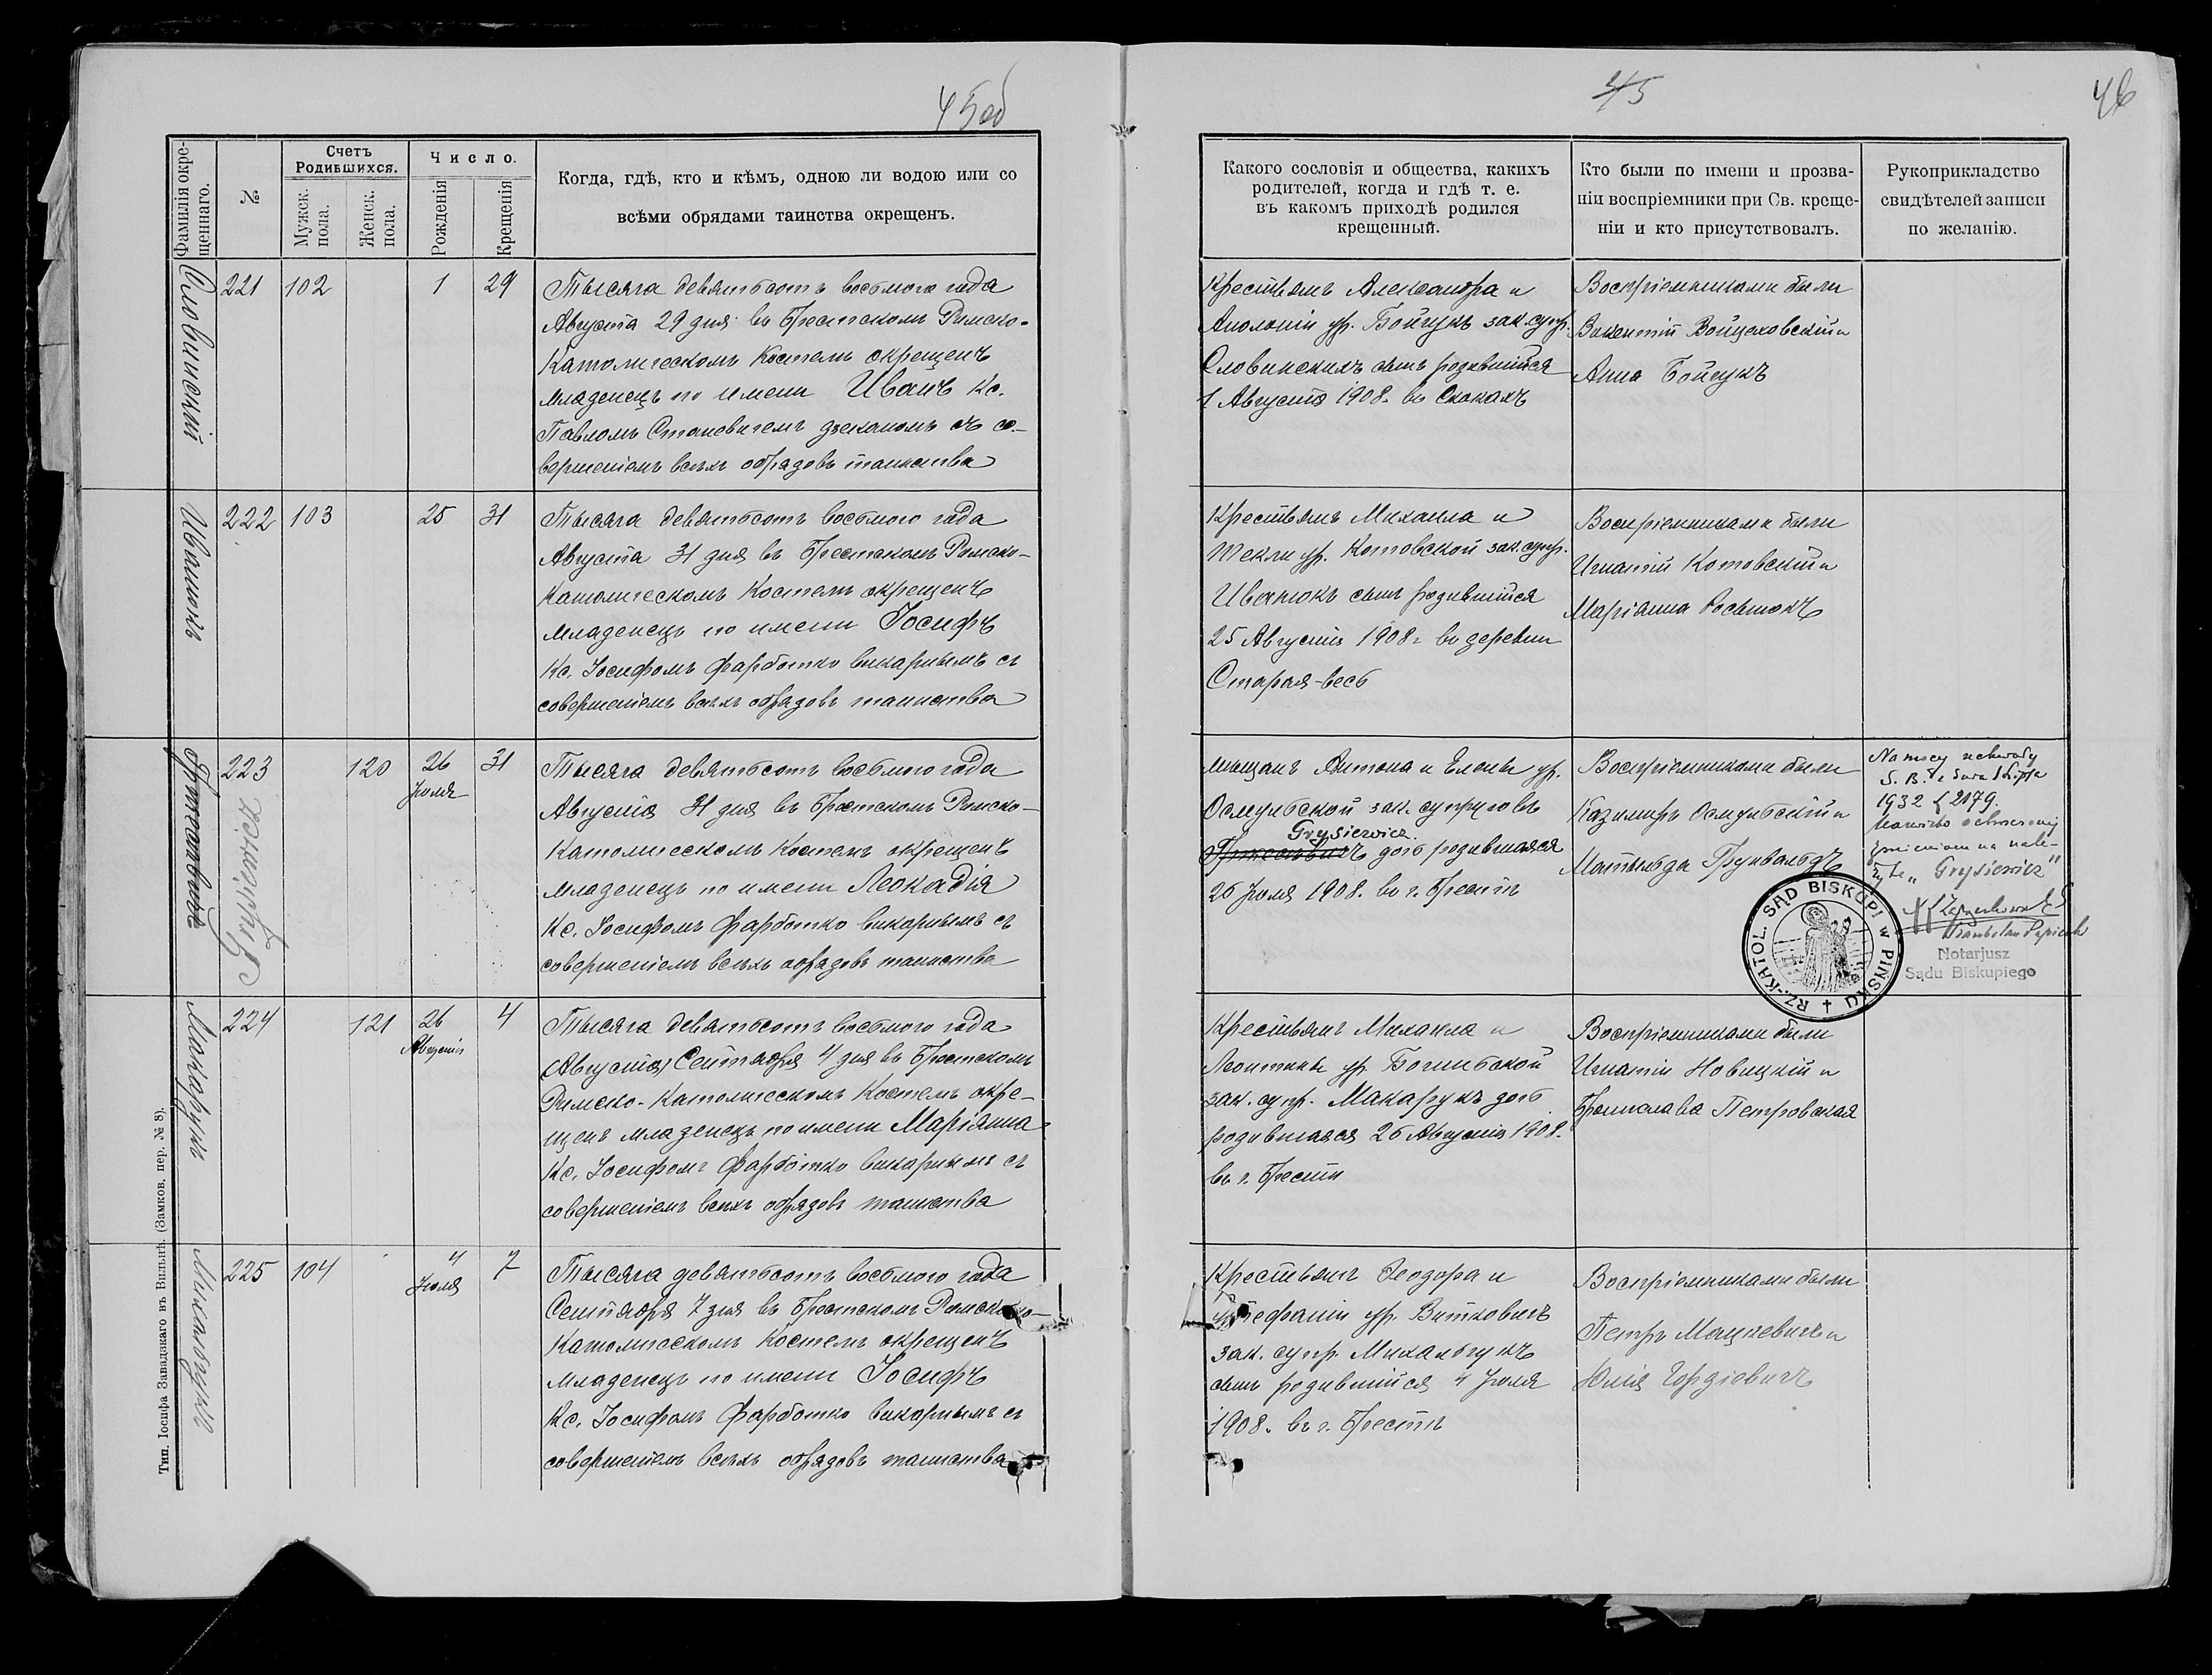 45об
Фамилія окре-
щеннаго.
№
Счетъ
Родившихся.
Мужск.
пола.
Женск.
пола.
Число.
Рожденія
Крещенія
Когда, гдѣ, кто и кѣмъ, одною ли водою или со
всѣми обрядами таинства окрещенъ.
Словинскій
221 102 1 29
Тысяча девятьсотъ восьмого года
Августа 29 дня въ Брестскомъ Римско-
Католическомъ Костелѣ окрещенъ
младенецъ по имени Иванъ Кс.
Павломъ Стакевичемъ деканомъ съ со-
вершеніемъ всѣхъ обрядовъ таинства
Иванюкъ
222 103 25 31
Тысяча девятьсотъ восьмого года
Августа 31 дня въ Брестскомъ Римско-
Католическомъ Костелѣ окрещенъ
младенецъ по имени Іосифъ
Кс. Іосифомъ Фарботко викарнымъ съ
совершеніемъ всѣхъ обрядовъ таинства
Grysiewicz
223 120 26 31
Іюля
Тысяча девятьсотъ восьмого года
Августа 31 дня въ Брестскомъ Римско-
Католическомъ Костелѣ окрещенъ
младенецъ по имени Леокадія
Кс. Іосифомъ Фарботко викарнымъ съ
совершеніемъ всѣхъ обрядовъ таинства
Макарукъ
224 121 26 4
Августа
Тысяча девятьсотъ восьмого года
(Августа) Сентября 4 дня въ Брестскомъ
Римско-Католическомъ Костелѣ окре-
щенъ младенецъ по имени Маріанна
Кс. Іосифомъ Фарботко викарнымъ съ
совершеніемъ всѣхъ обрядовъ таинства
Михальчукъ
225 104 4 7
Іюля
Тысяча девятьсотъ восьмого года
Сентября 7 дня въ Брестскомъ Римско-
Католическомъ Костелѣ окрещенъ
младенецъ по имени Іосифъ
Кс. Іосифомъ Фарботко викарнымъ съ
совершеніемъ всѣхъ обрядовъ таинства
Тип. Іосифа Завадзкаго въ Вильнѣ. (Замков. пер. № 8).
45
46
Какого сословія и общества, какихъ
родителей, когда и гдѣ т. е.
въ какомъ приходѣ родился
крещенный.
Кто были по имени и прозва-
ніи воспріемники при Св. креще-
ніи и кто присутствовалъ.
Рукоприкладство
свидѣтелей записи
по желанію.
Крестьянъ Александра и
Аполоніи ур. Бойчукъ зак. супр.
Словинскихъ сынъ родившійся
1 Августа 1908 г. въ Скокахъ
Воспріемниками были
Викентій Войцеховскій и
Анна Бойчукъ
Крестьянъ Михаила и
Текли ур. Котовской зак. супр.
Иванюкъ сынъ родившійся
25 Августа 1908 г. въ деревни
Старая-весь
Воспріемниками были
Игнатій Котовскій и
Маріанна
мѣщанъ Антона и Елены ур.
Осмульской зак. супруговъ
Grysiewicz.
дочь родившаяся
26 Іюля 1908 г. въ г. Брестѣ
Воспріемниками были
Казимиръ Осмульскій и
Матильда Грунвальдъ
Na mocy uchwały
S. B.
1932 2179.
zmieniam na nale-
"Grysiewicz"
Notarjusz
Sądu Biskupiego
RZ.-KATOL. SĄD BISKUPI w PIŃSKU
Крестьянъ Михаила и
Леонтины ур.
зак. супр. Макарукъ дочь
родившаяся 26 Августа 1908 г.
въ г. Брестѣ
Воспріемниками были
Игнатій Новицкій и
Брониславa Петровская
Крестьянъ Ѳеодора и
Стефаніи ур. Витковичъ
зак. супр. Михальчукъ
сынъ родившійся 4 Іюля
1908 г. въ г. Брестѣ
Воспріемниками были
Петръ Мацкевичъ и
Юлія Гордіевичъ